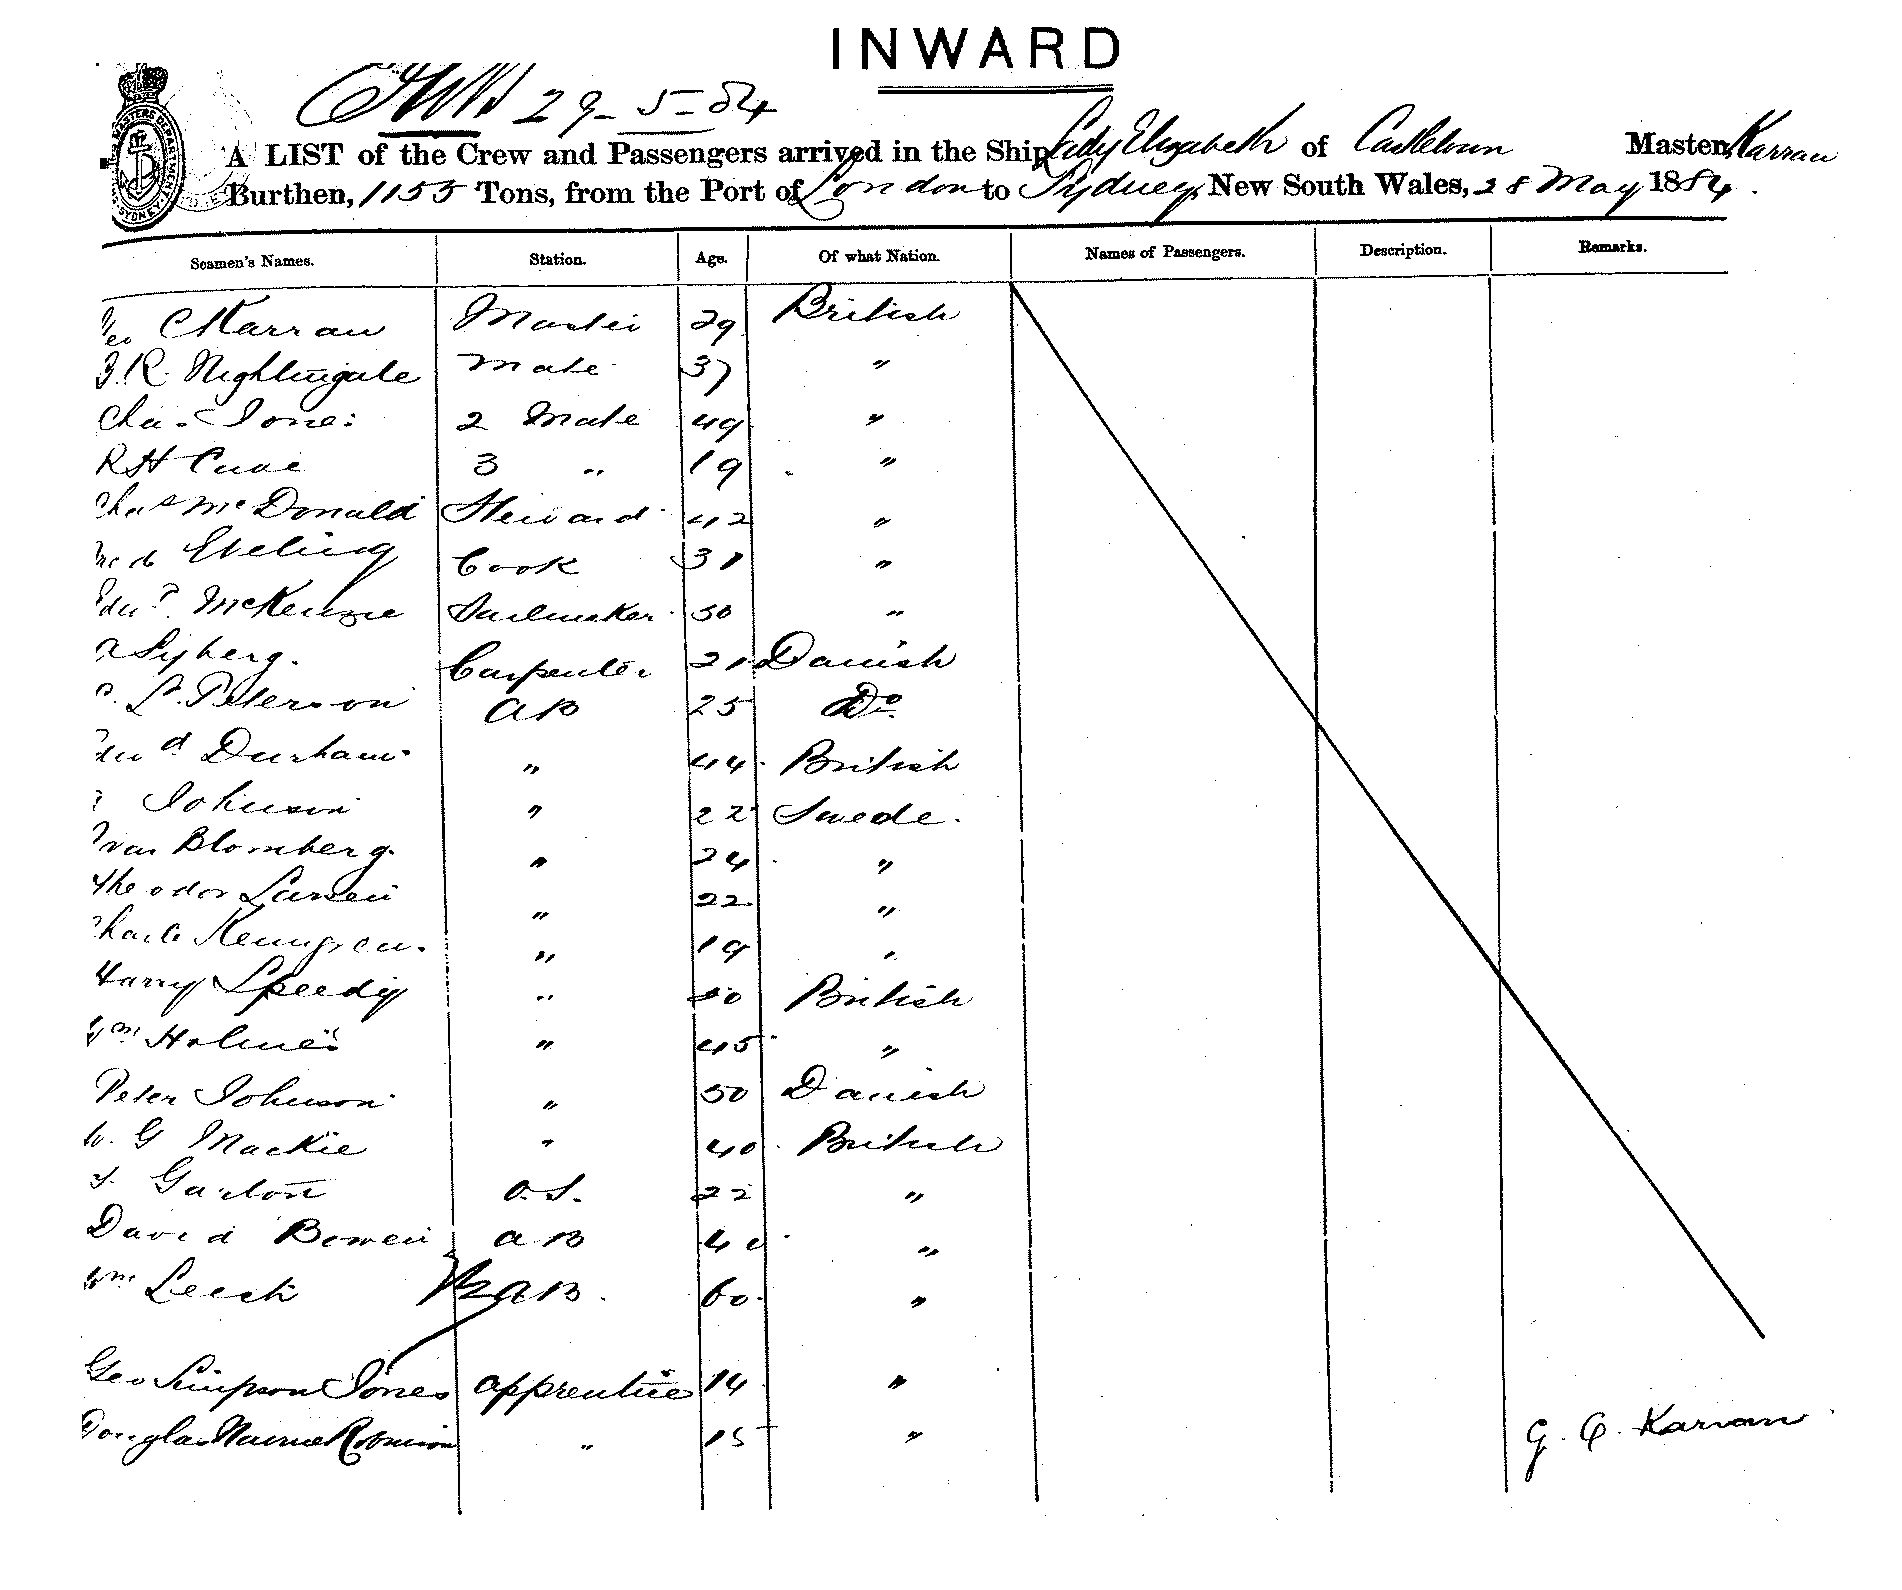 INWARD
29-5-84
A LIST of the Crew and Passengers arrived in the Ship Lady Elizabeth of Castletown Master, Karran
Burthen, 1155 Tons, from the Port of London to Sydney, New South Wales, 28 May 1884.
Seamen's Names. Station. Age. Of what Nation. Names of Passengers. Description. Remarks.
Geo C Karran Master 29 British
Nightingale Mate 37 "
Chas Jones 2 Mate 49 "
R H Cave 3 " 19 "
Chas McDonald Steward 42 "
Cook 31 "
Edwd McKenzie Sailmaker 50 "
Carpenter 21 Danish
P. Peterson AB 25 Do
Edwd Durham " 44 British
Johnson " 22 Swede.
Blomberg " 24 "
Theodor Larsen " 22 "
Charle " 19 "
Harry Speedy " 50 British
Wm Holmes " 45 "
Peter Johnson " 50 Danish
W. G Mackie " 40 British
Garton O.S. 22 "
David Bowen AB 40 "
Wm Leech AB. 60 "
Geo Simpson Jones apprentice 14 "
Douglas Robinson " 15 "
G. C. Karran